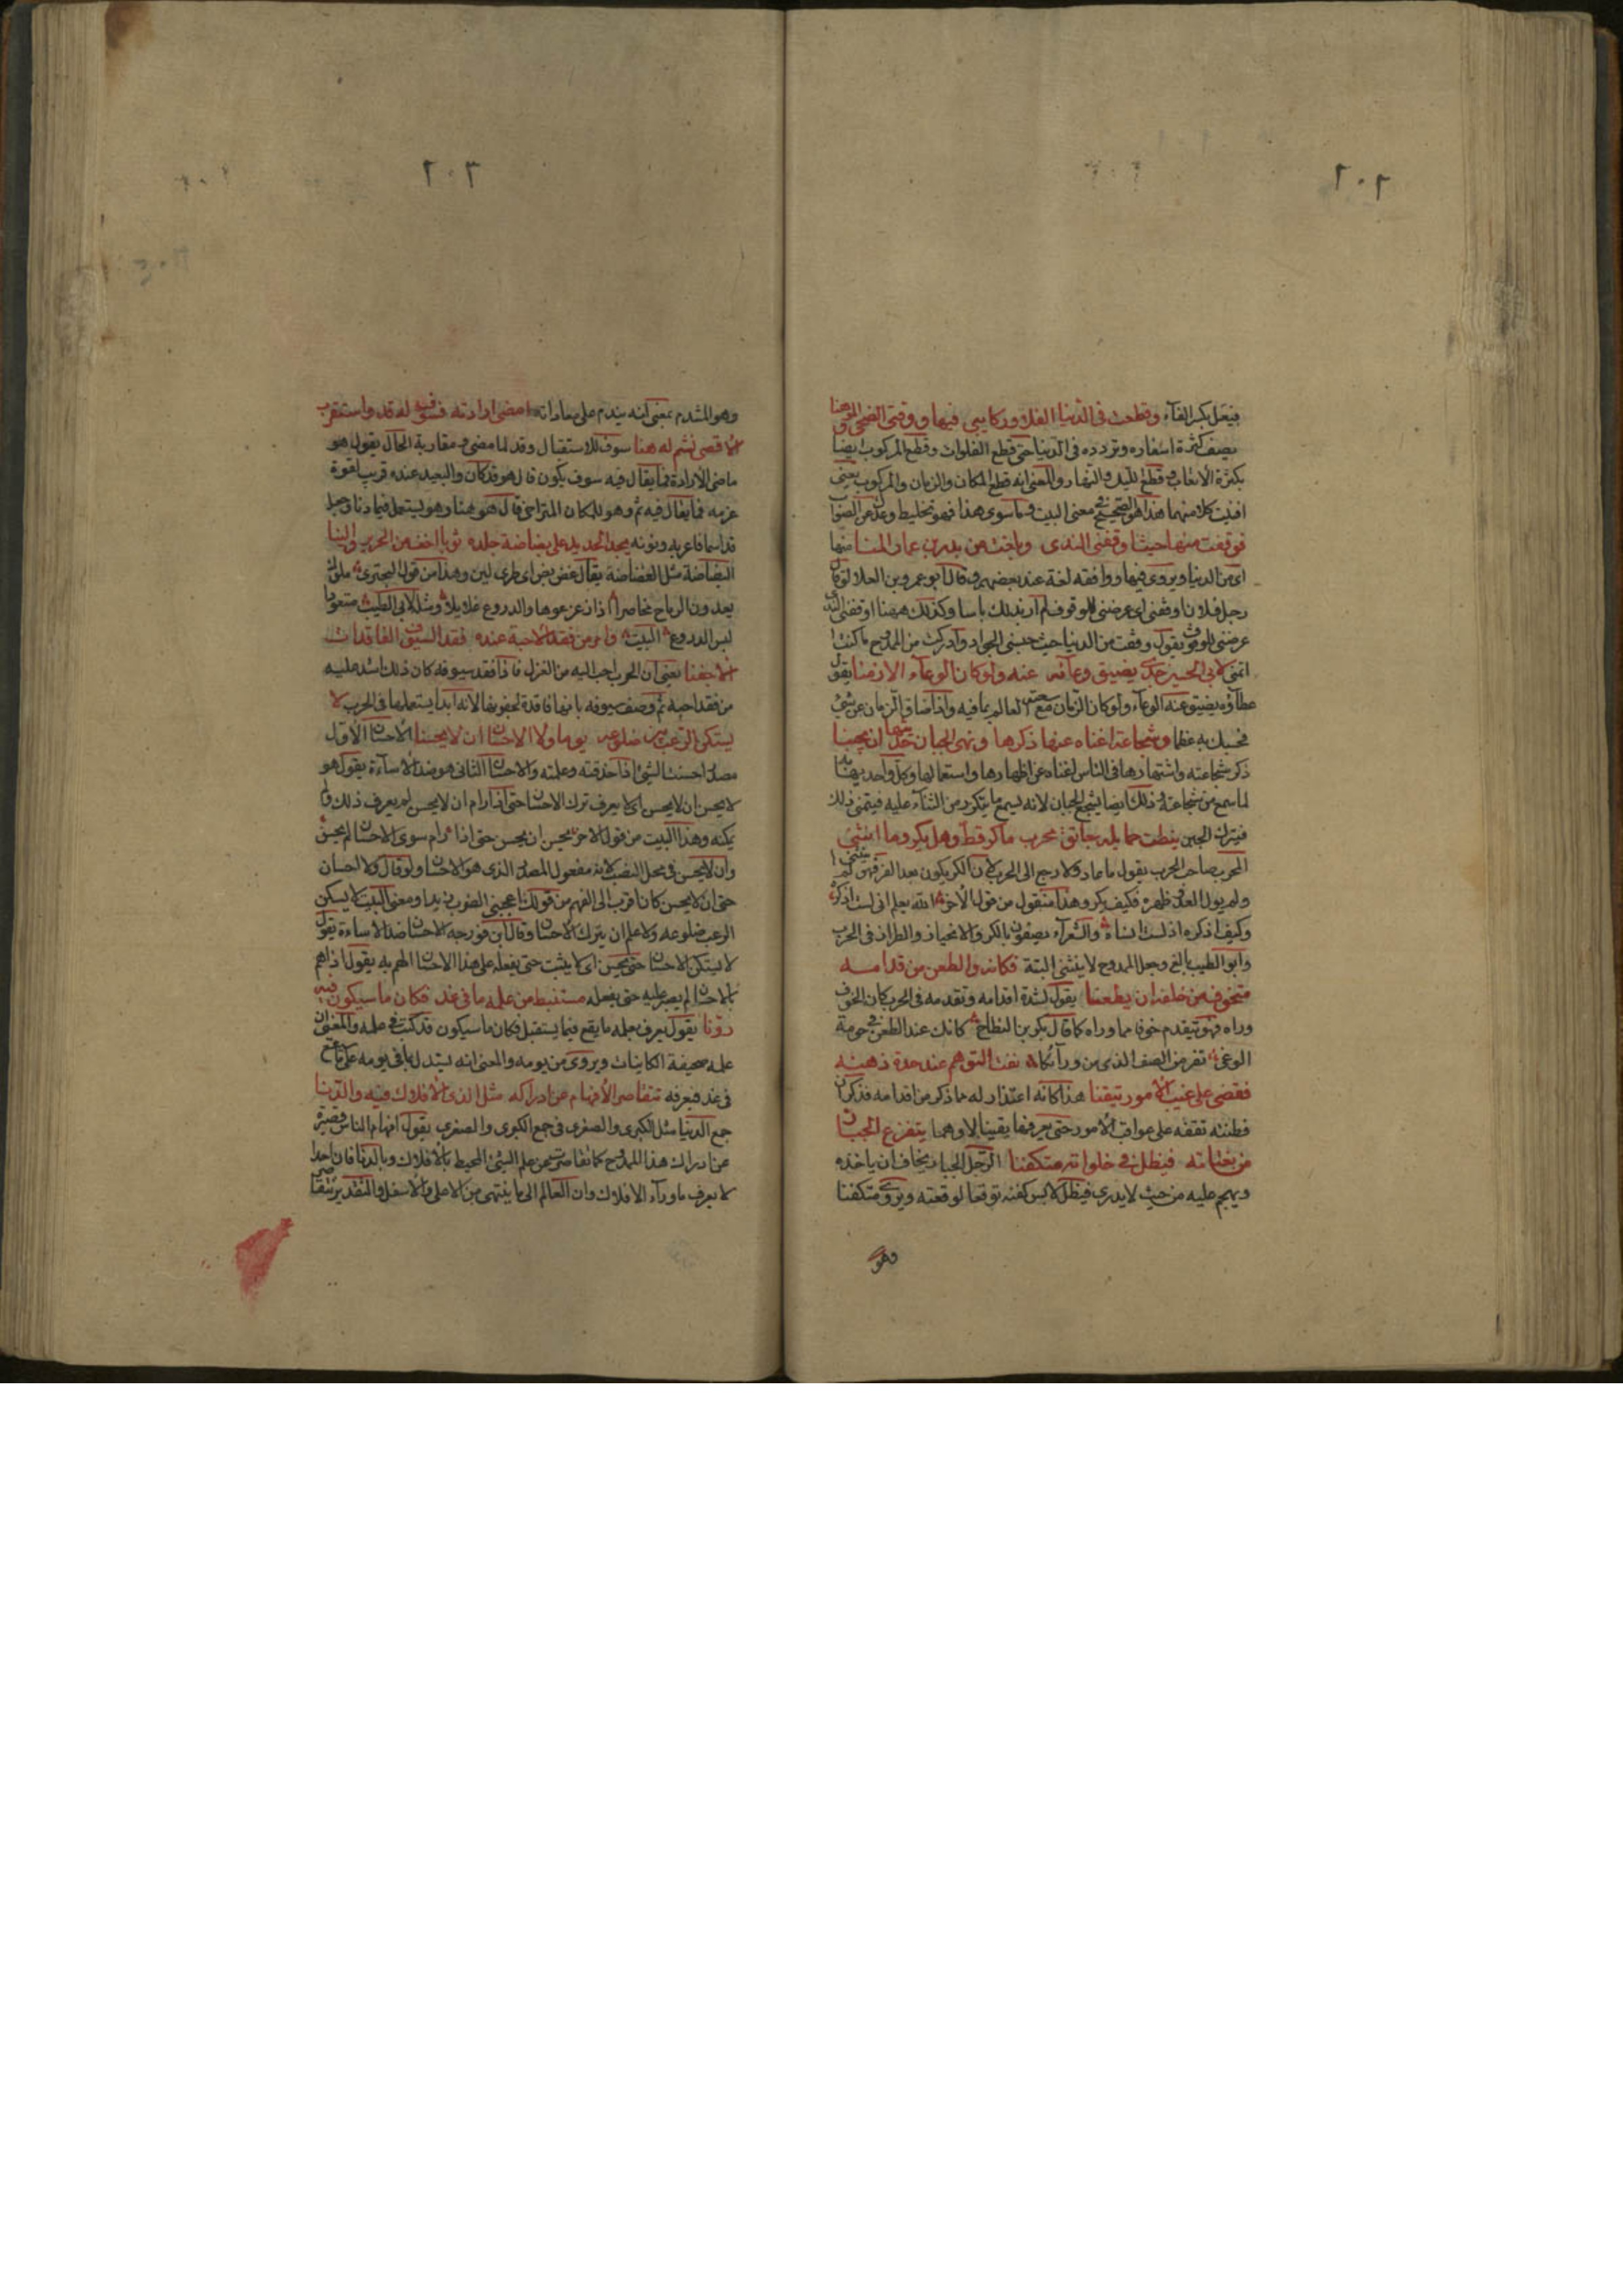 ٢٠٢
فيفعل بكسر الفاء وقطعت فى الدنيا الفلا وركايبى فيها ووقتى الضحى والموهنا
يصف كثرة اسفاره وتردده فى الدنيا حتى قطع الفلوات وقطع المركوب ايضا
بكثرة الاتعاب وقطع الليل والنهار والمعنى انه قطع المكان والزمان والمركوب يعنى
افنيت كلا منهما هذا هو الصحيح فى معنى البيت وما سوى هذا فهو تخليط وعدل عن الصواب
فوقفت منها حيث اوقفنى الندى وبلغت من بدر بن عمار المنا منها
اى من الدنيا ويروى فيها ووافقه لغة عند بعضهم وقال ابو عمرو بن العلا لو قال
رجل فلانا اوقفنى اى عرضنى للوقوف لم ار بذلك باسا وكذلك ههنا اوقفنى الندى
عرضنى للوقوف يقول وقفت من الدنيا حيث حبسنى الجود وادركت من الممدوح ما كنت
اتمنى لابى الحسين جدى يضيق وعاؤه عنه ولو كان الوعاء الازمنا يقول
عطاؤه يضيق عنه الوعاء ولو كان الزمان مع سعته لعالم بما فيه واذا ضاق الزمان عن شئ
فحسبك به عظما وشجاعة اغناه عنها ذكرها ونهى الجبان حديثها ان يجبنا
ذكر شجاعته واشتهارها فى الناس اغناه عن اظهارها واستعمالها وكل واحد يهابه
لما سمع من شجاعته وذلك ايضا يشجع الجبان لانه يسمع ما يتكرر من الثناء عليه فيتمنى ذلك
فيترك الجبن نيطت حمايله بعاتق محرب ما كر قط وهل يكر وما انثنى
المحرب صاحب الحرب يقول ما عاد ولا رجع الى الحرب لان الكر يكون بعد الفر فهو لم ينثنى
ولم يول العدو ظهره فكيف يكر وهذا منقول من قول الاخر الله يعلم انى لست اذكره
وكيف اذكره اذ لست انساه والشعراء يصفون بالكر والانحياز والطراد فى الحرب
وابو الطيب بالغ وجعل الممدوح لا ينثنى البتة فكانه والطعن من قدامه
متخوف من خلفه ان يطعنا يقول لشدة اقدامه وتقدمه فى الحرب كان الخوف
وراه فهو يتقدم خوفا مما وراه كما قال بكر بن النطاح كانك عند الطعن فى حومة
الوغى تفر من الصف الذى من ورائكا نفت التوهم عنه حدة ذهنه
فقضى على غيب الامور تيقنا هذا كانه اعتذار له مما ذكر من اقدامه فذكر ان
فطنته تقفه على عواقب الامور حتى يعرفها يقينا لا وهما يتفزع الجبار
من بغتاته فيظل فى خلواته متكفنا الرجل الجبار يخاف ان ياخذه
ويهجم عليه من حيث لا يدرى فيظل لابس كفنه توقعا لوقعته ويروى متكفنا
وهو
٢٠٣
وهو المتندم بمعنى انه يندم على معاداته امضى ارادته فسوف له قد واستقرب
الاقصى فثم له هنا سوف للاستقبال وقد لما مضى ومقاربة الحال يقول هو
ماضى الارادة فما يقال فيه سوف يكون قال هو قد كان والبعيد عنده قريب لقوة
عزمه فما يقال فيه ثم وهو للمكان المتراخى قال هو هنا وهو يستعمل فيما دنا وجعل
قد اسما فاعربه ونونه يجد الحديد على بضاضة جلده ثوبا اخف من الحرير والينا
البضاضة مثل الغضاضة يقال غض بض اى طرى لين وهذا من قول البحترى ملوك
يعدون الرماح مخاصرا اذا زعزعوها والدروع غلايلا ومثله لابى الطيب متعود
لبس الدروع البيت وامر من فقد الاحبة عنده فقد السيوف الفاقدات
الاجفنا يعنى ان الحرب احب اليه من الغزل فاذا فقد سيوفه كان ذلك اشد عليه
من فقد احبه ثم وصف سيوفه بانها فاقدة لجفونها لانه ابدا يستعملها فى الحرب لا
يستكن الرعب بين ضلوعه يوما ولا الاحسان ان لا يحسنا الاحسان الاول
مصدر احسنت الشئ اذا حذقته وعلمته والاحسان الثانى هو ضد الاساءة يقول هو
لا يحسن ان لا يحسن اى لا يعرف ترك الاحسان حتى اذا رام ان لا يحسن لم يعرف ذلك ولم
يمكنه وهذا البيت من قول الاخر يحسن ان يحسن حتى اذا رام سوى الاحسان لم يحسن
وان لا يحسن فى محل النصب لانه مفعول المصدر الذى هو الاحسان ولو قال ولا احسان
حتى ان لا يحسن كان اقرب الى الفهم من قولك اعجبنى الضرب زيدا ومعنى البيت لا يسكن
الرعب ضلوعه ولا علم ان يترك الاحسان وقال ابن فورجه الاحسان ضد الاساءة يقول
لا يستكن الاحسان حتى يحسن اى لا يثبت حتى يفعله على هذا الاحسان الهم به يقول اذا هم
بالاحسان لم يصبر عليه حتى يفعله مستنبط من علمه ما فى غد فكان ما سيكون فيه
دونا يقول يعرف بعلمه ما يقع فيما يستقبل فكان ما سيكون قد كتب فى علمه والمعنى ان
علمه صحيفة الكاينات ويروى من يومه والمعنى انه يستدل بما فى يومه على ما يقع
فى غد فيعرفه تتقاصر الافهام عن ادراكه مثل الذى الافلاك فيه والدنا
جمع الدنيا مثل الكبرى والصغرى فى جمع الكبرى والصغرى يقول افهام الناس قصيرة
عن ادراك هذا الممدوح كما تقاصرت عن علم الشئ المحيط بالافلاك وبالدنا فان احدا
لا يعرف ما وراء الافلاك وان العالم الى ما ينتهى من الاعلى والاسفل والتقدير تتقاصر